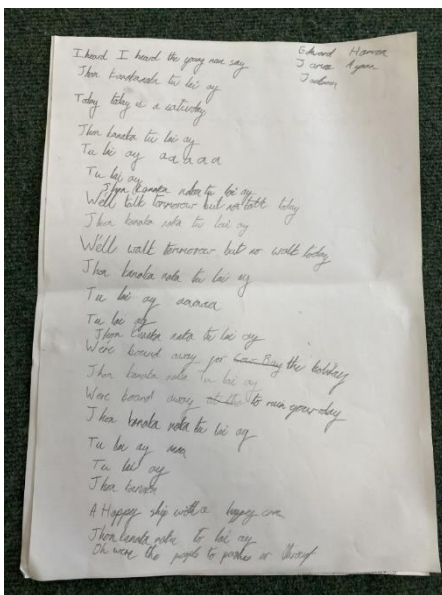 I heard I heard the young man say
Edward Hanna
Jhon kanakanaka tu lai ay
Today today is a saturday
Jhon kanaka tu lai ay
Tu lai ay aaaaa
Tu lai ay
Jhon kanaka naka tu lai ay
Well talk tommorow but not talk today
Jhon kanaka naka tu lai ay
Well walk tommorow but no walk today
Jhon kanaka naka tu lai ay
Tu lai ay aaaaa
Tu lai ay
Jhon kanaka naka tu lai ay
Were bound away for the
Jhon kanaka naka tu lai ay
Were bound away to
Jhon kanaka naka tu lai ay
Tu lai ay aaa
Tu lai ay
Jhon kanaka
A Happy ship with a happy crew
Jhon kanaka naka tu lai ay
Oh were the people to